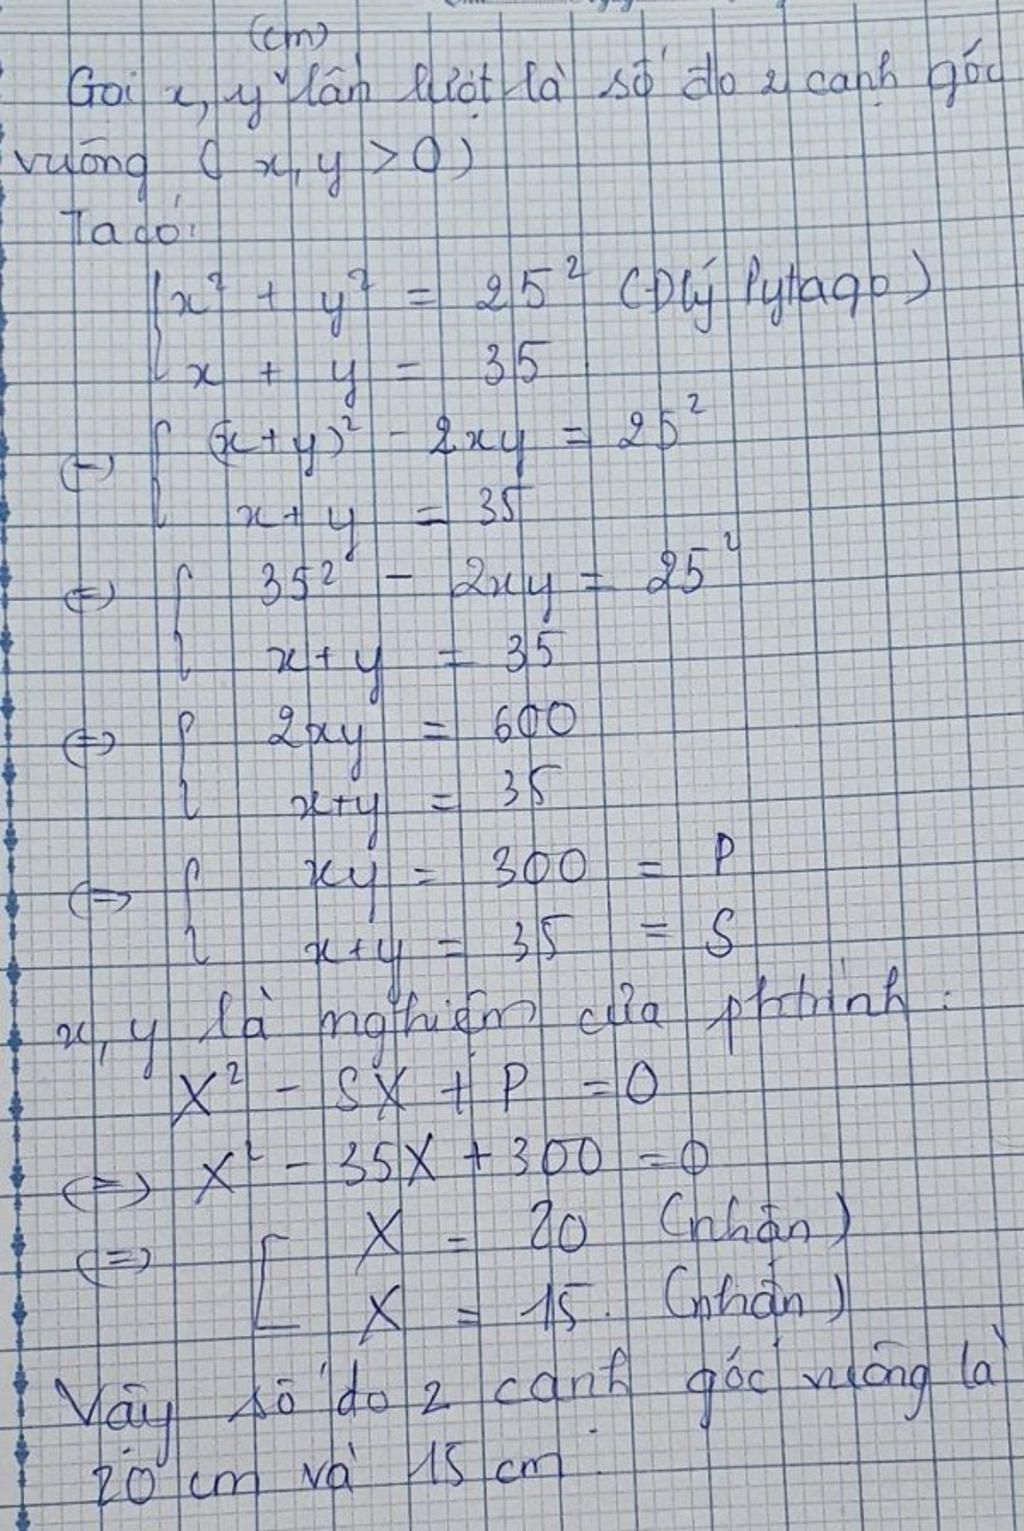 (cm)
Gọi x, y lần lượt là số đo 2 cạnh góc
vuông ( x, y > 0 )
Ta có:
{ x² + y² = 25² (Đlý Pytago)
x + y = 35
(=) { (x+y)² - 2xy = 25²
x + y = 35
(=) { 35² - 2xy = 25²
x + y = 35
(=) { 2xy = 600
x+y = 35
(=) { xy = 300 = P
x+y = 35 = S
x, y là nghiệm của phtrình :
X² - SX + P = 0
(=) X² - 35X + 300 = 0
(=) [ X = 20 (nhận)
X = 15. (nhận)
Vậy số đo 2 cạnh góc vuông là
20 cm và 15 cm.